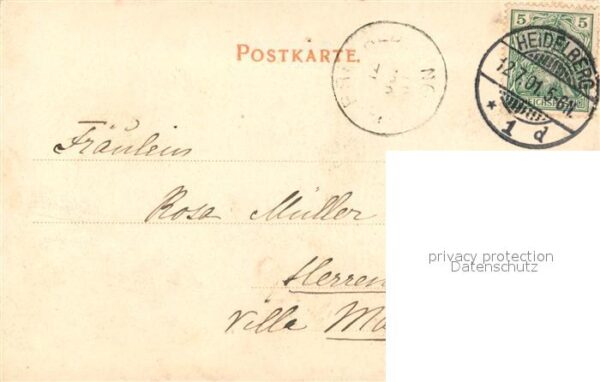 5 5
POSTKARTE.
HEIDELBERG
12.7.01.5-6N.
* 1 d
Fräulein
Rosa Müller
Herren
Villa Ma
privacy protection
Datenschutz